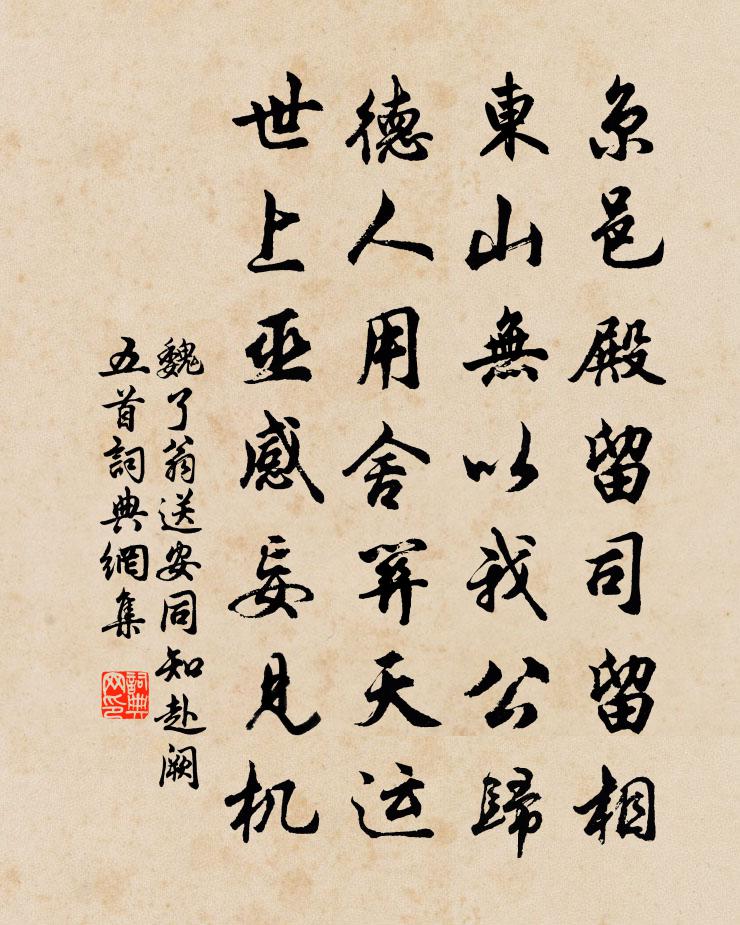 京邑殿留司留相
東山無以我公歸
德人用舍天运
世上感妄見机
魏了翁送安同知赴闕
五首詞典網集
詞典
网印